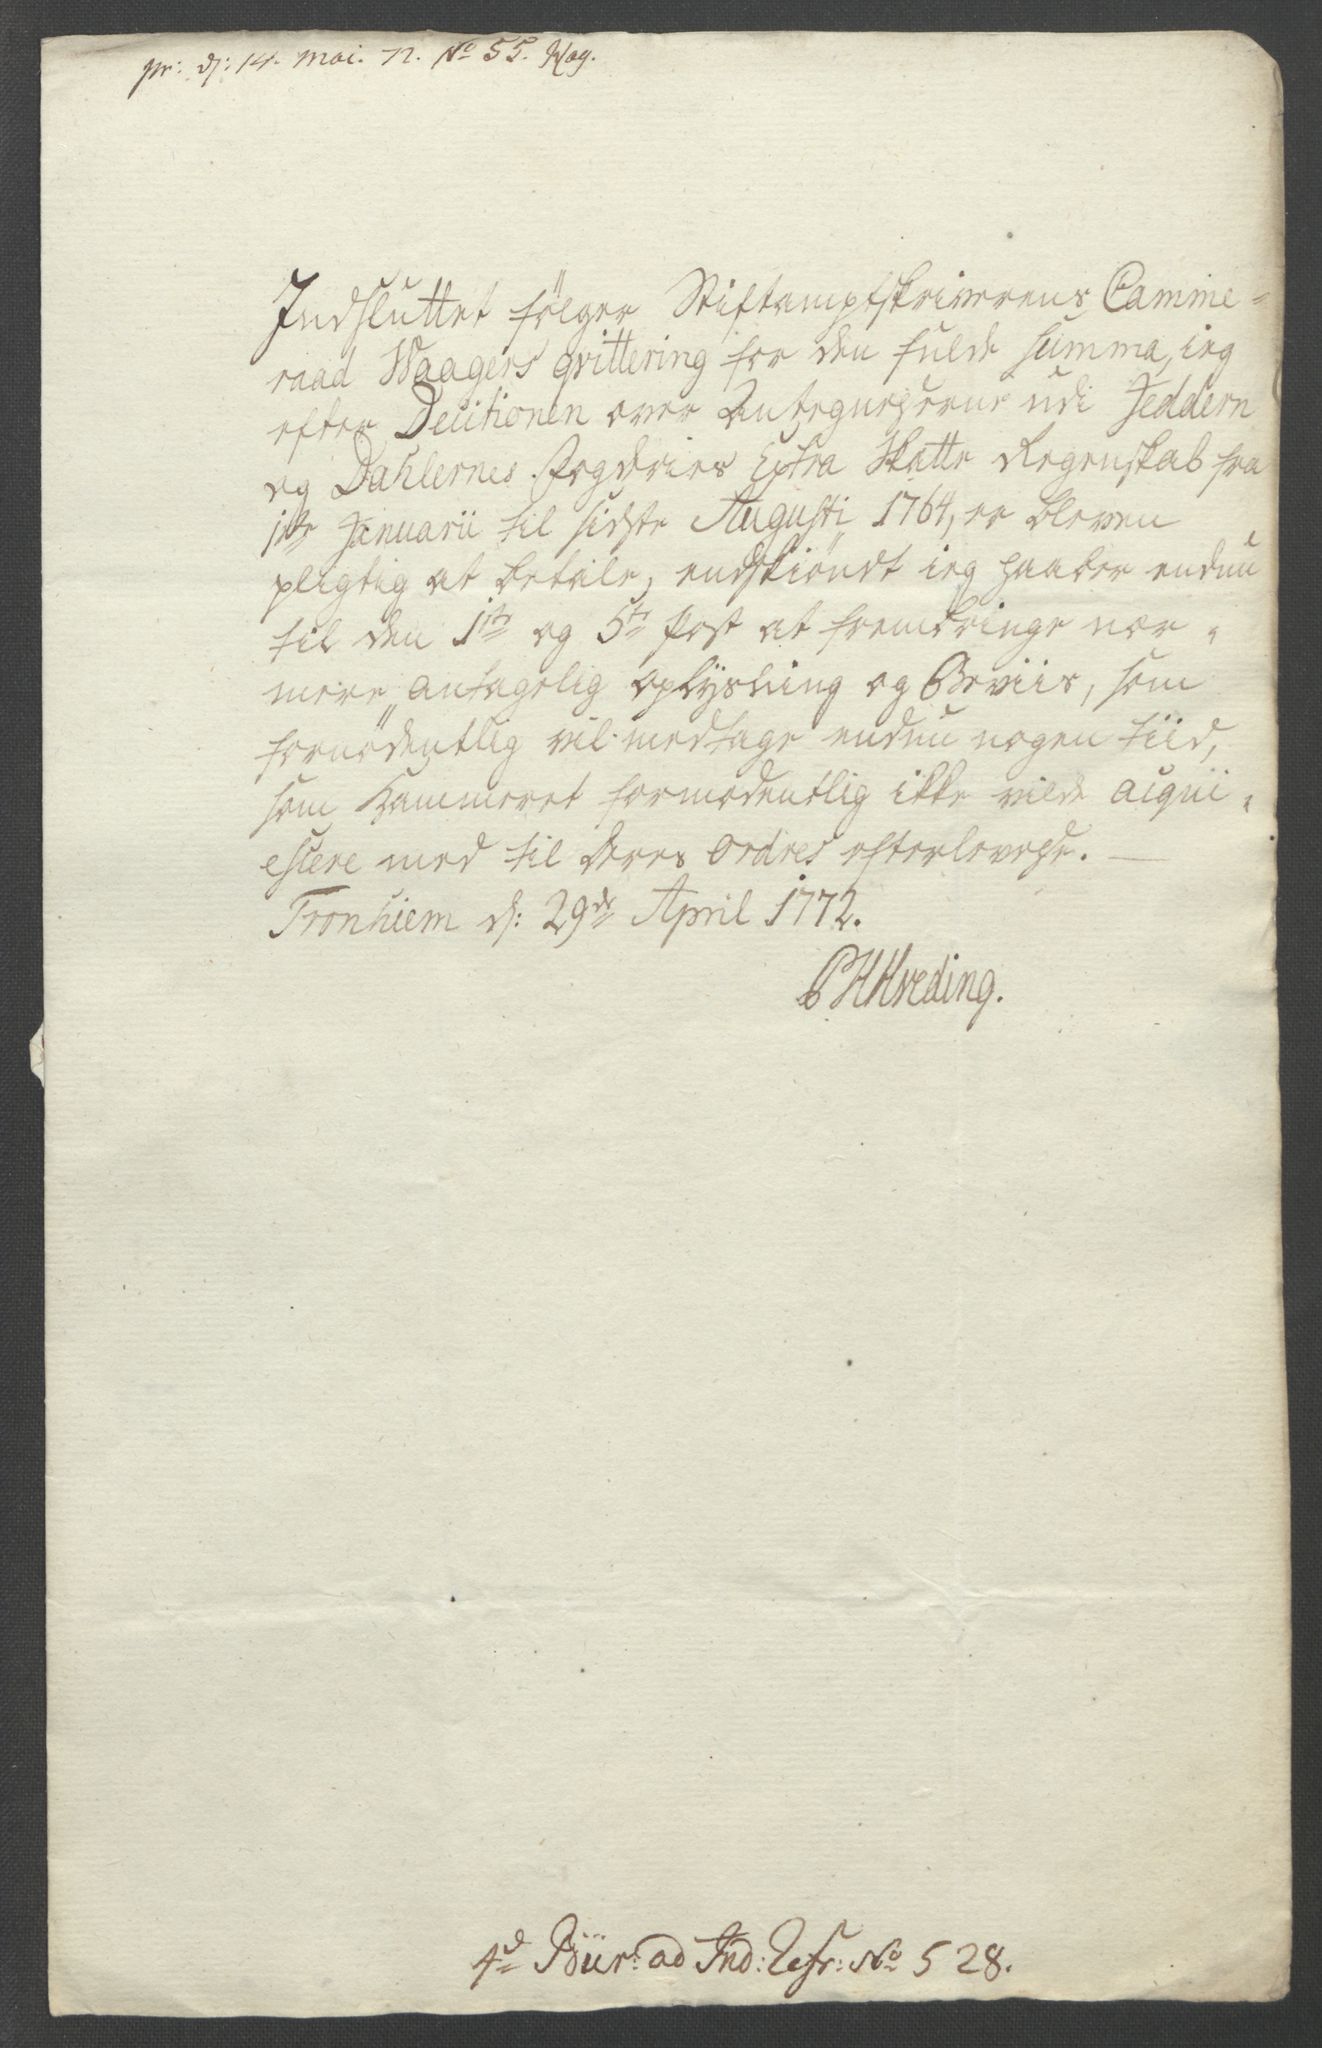 pr: d: 14. Mai. 72. No 55.
Indsluttet fölger Stiftamptskriverens Camme-
raad Waagers qvittering for den fulde summa, ieg
efter Decitionen over Antegnelserne udi Jeddern
og Dahlernes Fogderies Extra Skatte Regenskab fra
1ste Januarii til sidste Augusti 1764, er bleven
pligtig at betale, endskiöndt ieg haaber endnu
til den 1ste og 5te Post at frembringe nær-
mere antagelig oplysning og Beviis, som
fornödentlig vil medtage endnu nogen tiid,
som Kammeret formodentlig ikke vilde acqui-
escere med til deres Ordres efterlevelse. —
Tronhiem d: 29de April 1772.
PHHveding.
4de Bür: ad Ind: No 528.